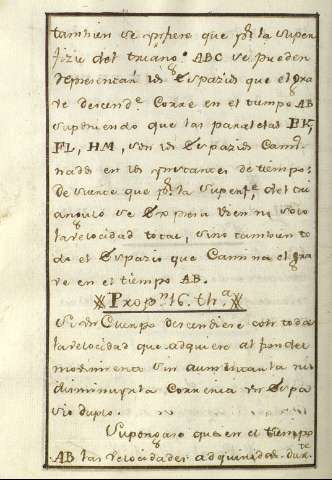 tambien se ynfiere que pr. la super
fizie del triango. ABC se pueden
representar los Espazios que el gra
ve descende. Corre en el tiempo AB
suponiendo que las paralelas EK,
FL, HM, son los Espazios Cami
nados en los instantes de tiempo:
De suerte que pr. la superfe. del tri
angulo se Expresa bien no solo
la velocidad total, sino tambien to
do el Espazio que Camina el gra
ve en el tiempo AB.
Propn. 16. tha.
Si un Cuerpo descendiere con toda
la velocidad que adquiere al fin del
movimiento sin aumentarla ni
diminuyrla Correria un Espa
sio duplo.
Supongase que en el tiempo
AB las velocidades adquiridas dur.te